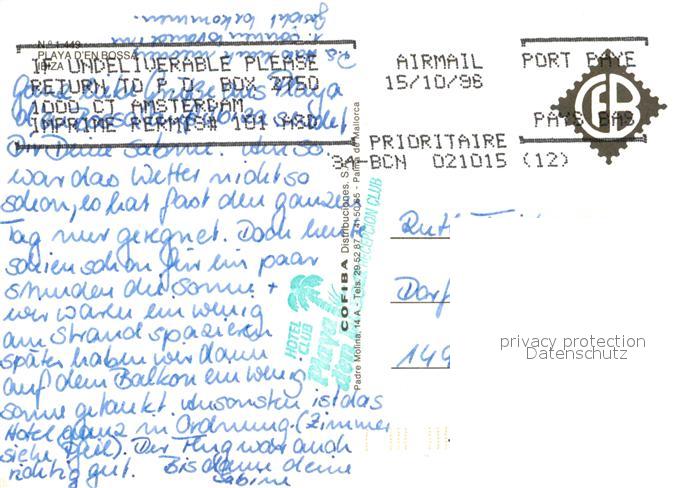 P.S. habe
Gesicht bekommen.
N.º 1.449
PLAYA D'EN BOSSA
IBIZA
IF UNDELIVERABLE PLEASE
RETURN TO P.O. BOX 2750
1000 CT AMSTERDAM
IMPRIME PERMIS# 101 ASD
AIRMAIL PORT PAYE
15/10/96
PAYS BAS
PRIORITAIRE
34-BCN 021015 (12)
CFB
Ganz liebe Grüße aus Playa
d'en Bossa Ibiza sendet
Dir Deine Sabine.
war das Wetter nicht so
schön, es hat fast den ganzen
Tag nur geregnet. Doch heute
schien schon für ein paar
Stunden die Sonne +
wir waren ein wenig
am Strand spazieren
später haben wir dann
auf dem Balkon ein wenig
Sonne getankt. Ansonsten ist das
Hotel ganz in Ordnung. (Zimmer
siehe Pfeil). Der Flug war auch
richtig gut. Bis dann deine
Sabine
COFIBA Distribuciones, S.A.
Padre Molina, 14 A - Tels. 29 52 87 / 41 50 65 - Palma de Mallorca
HOTEL
CLUB
Playa
d'en
RECEPCION CLUB
Dorf
149
privacy protection
Datenschutz